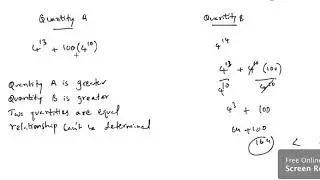 Quantity A
4^13 + 100(4^10)
Quantity A is greater
Quantity B is greater
Two quantities are equal
relationship can't be determined
Quantity B
4^14
4^13 + 4^10 (100)
4^10 4^10
4^3 + 100
64 + 100
164 <
Free Online
Screen Re